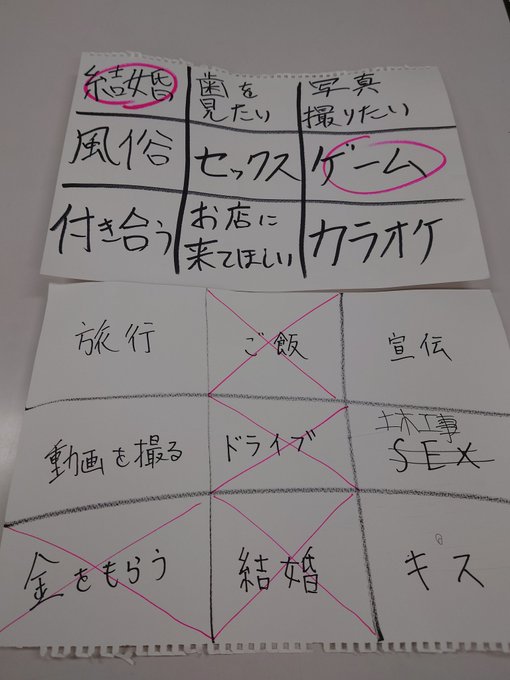 結婚
歯を
見たい
写真
撮りたい
風俗
セックス
ゲーム
付き合う
お店に
来てほしい
カラオケ
旅行
ご飯
宣伝
動画を撮る
ドライブ
土木工事
SEX
金をもらう
結婚
キス